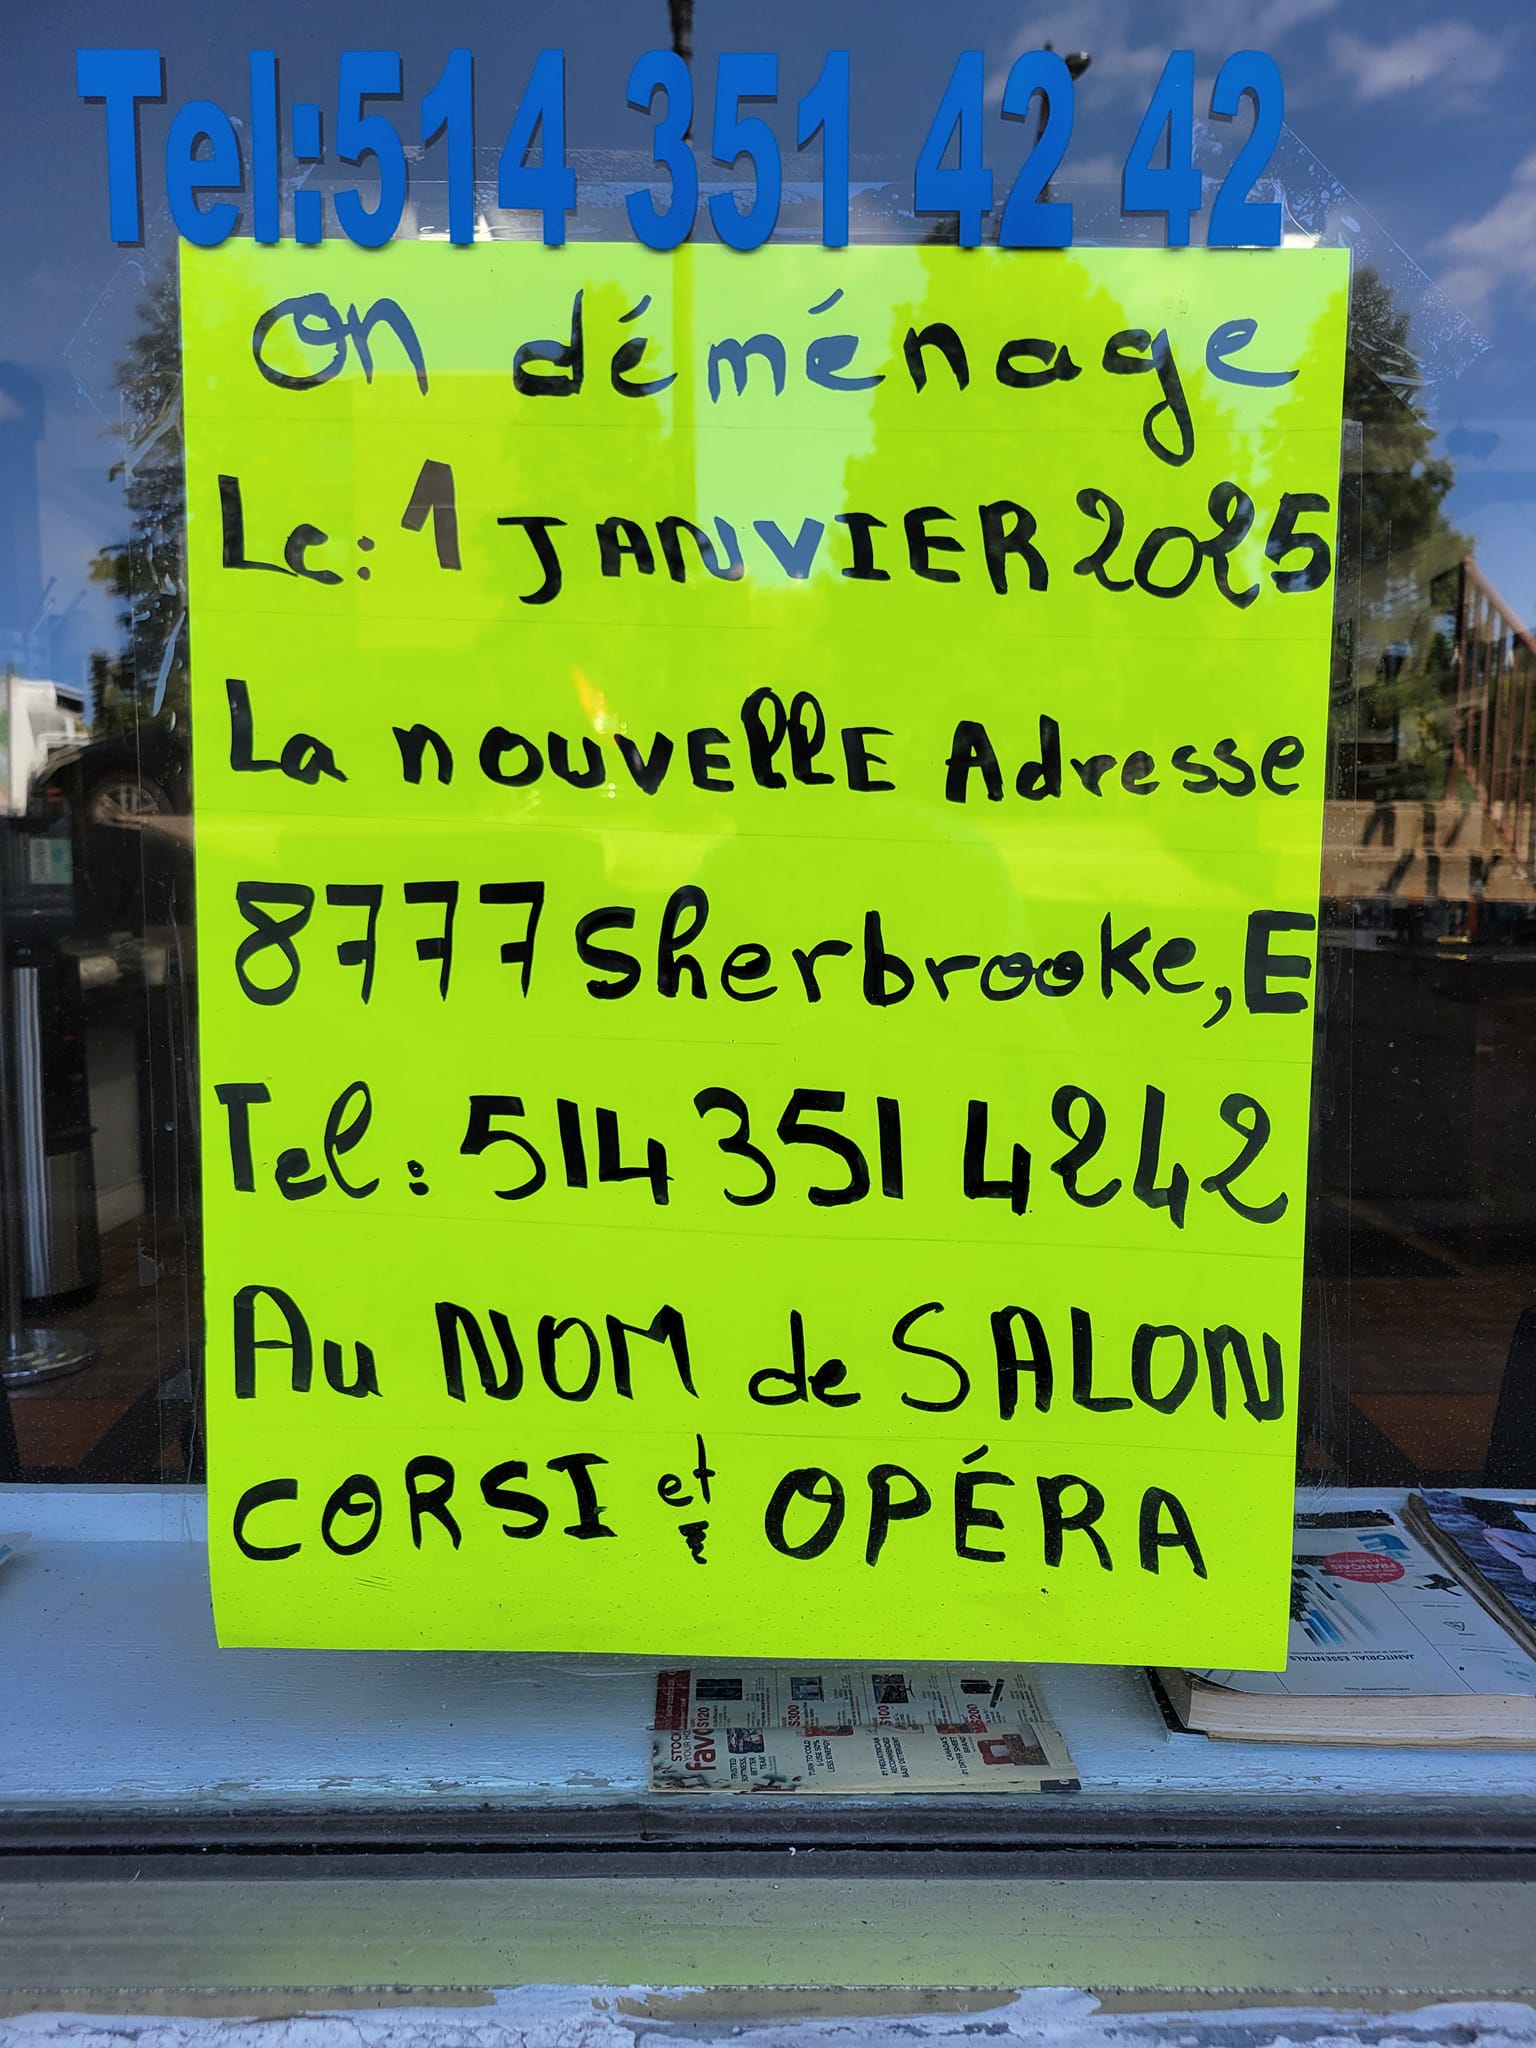 Tel:514 351 42 42
On déménage
Le: 1 JANVIER 2025
La nOUVEllE Adresse
8777 Sherbrooke, E
Tel: 514 351 4242
Au NOM de SALON
CORSI et OPÉRA
FRANÇAIS
JANITORIAL ESSENTIALS
STOCK
YOUR HO
favo
$120
$300
$100
$200
TRUSTED
SOFTNESS,
BETTER
TEAR
TURN TO COLD
& USE 50%
LESS ENERGY
#1 PEDIATRICIAN
RECOMMENDED
BABY DETERGENT
CANADA'S
#1 DRYER SHEET
BRAND